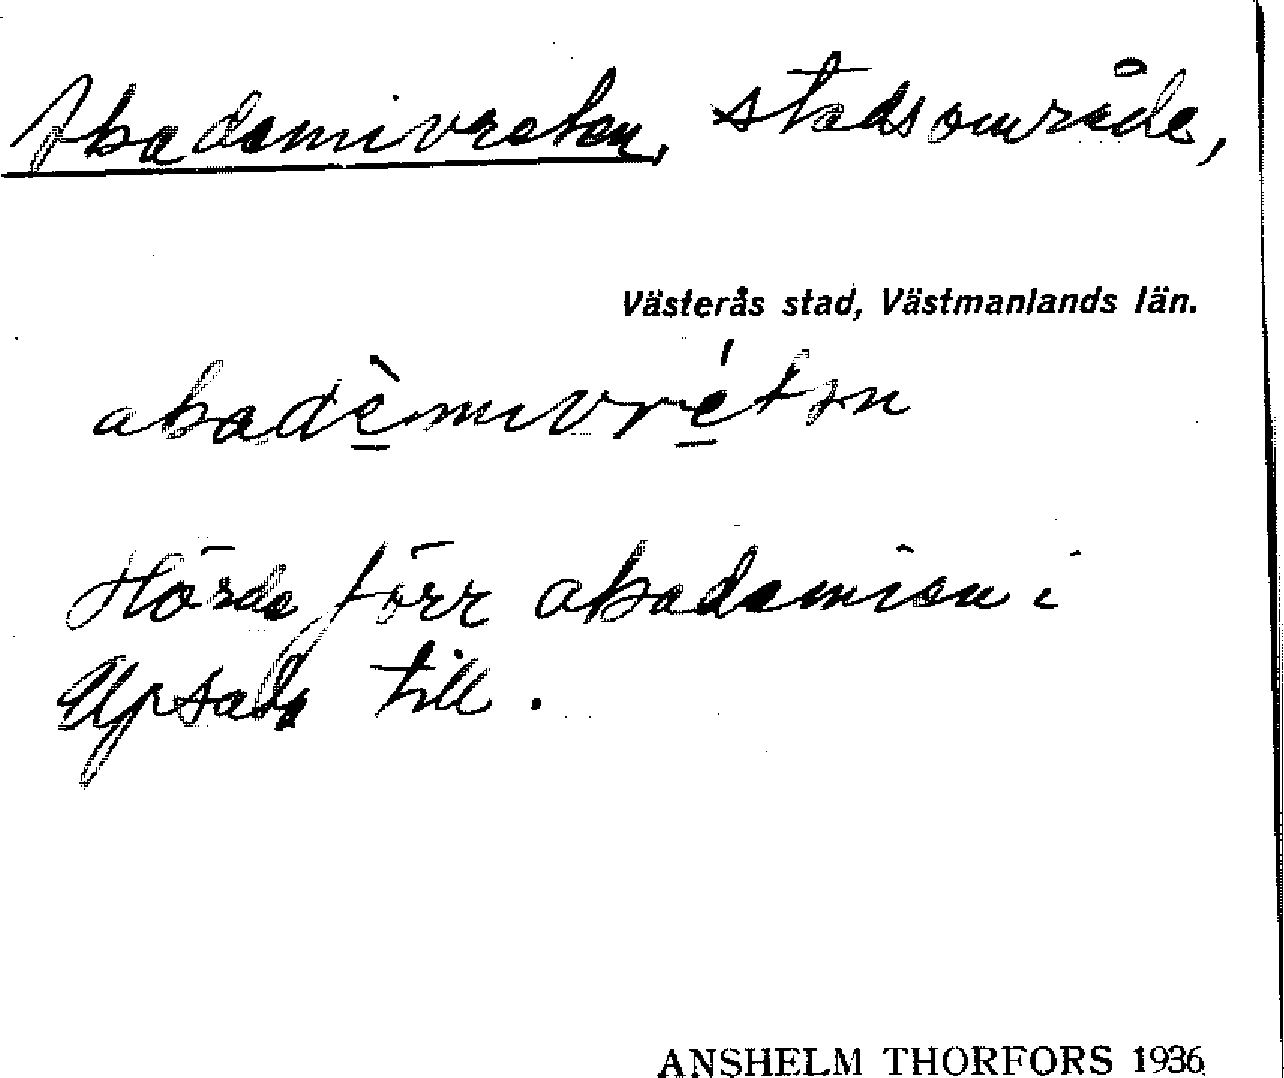 Akademivreten, stadsområde,
Västerås stad, Västmanlands län.
akadèmivrétən
Hörde förr akademien i
Upsala till.
ANSHELM THORFORS 1936